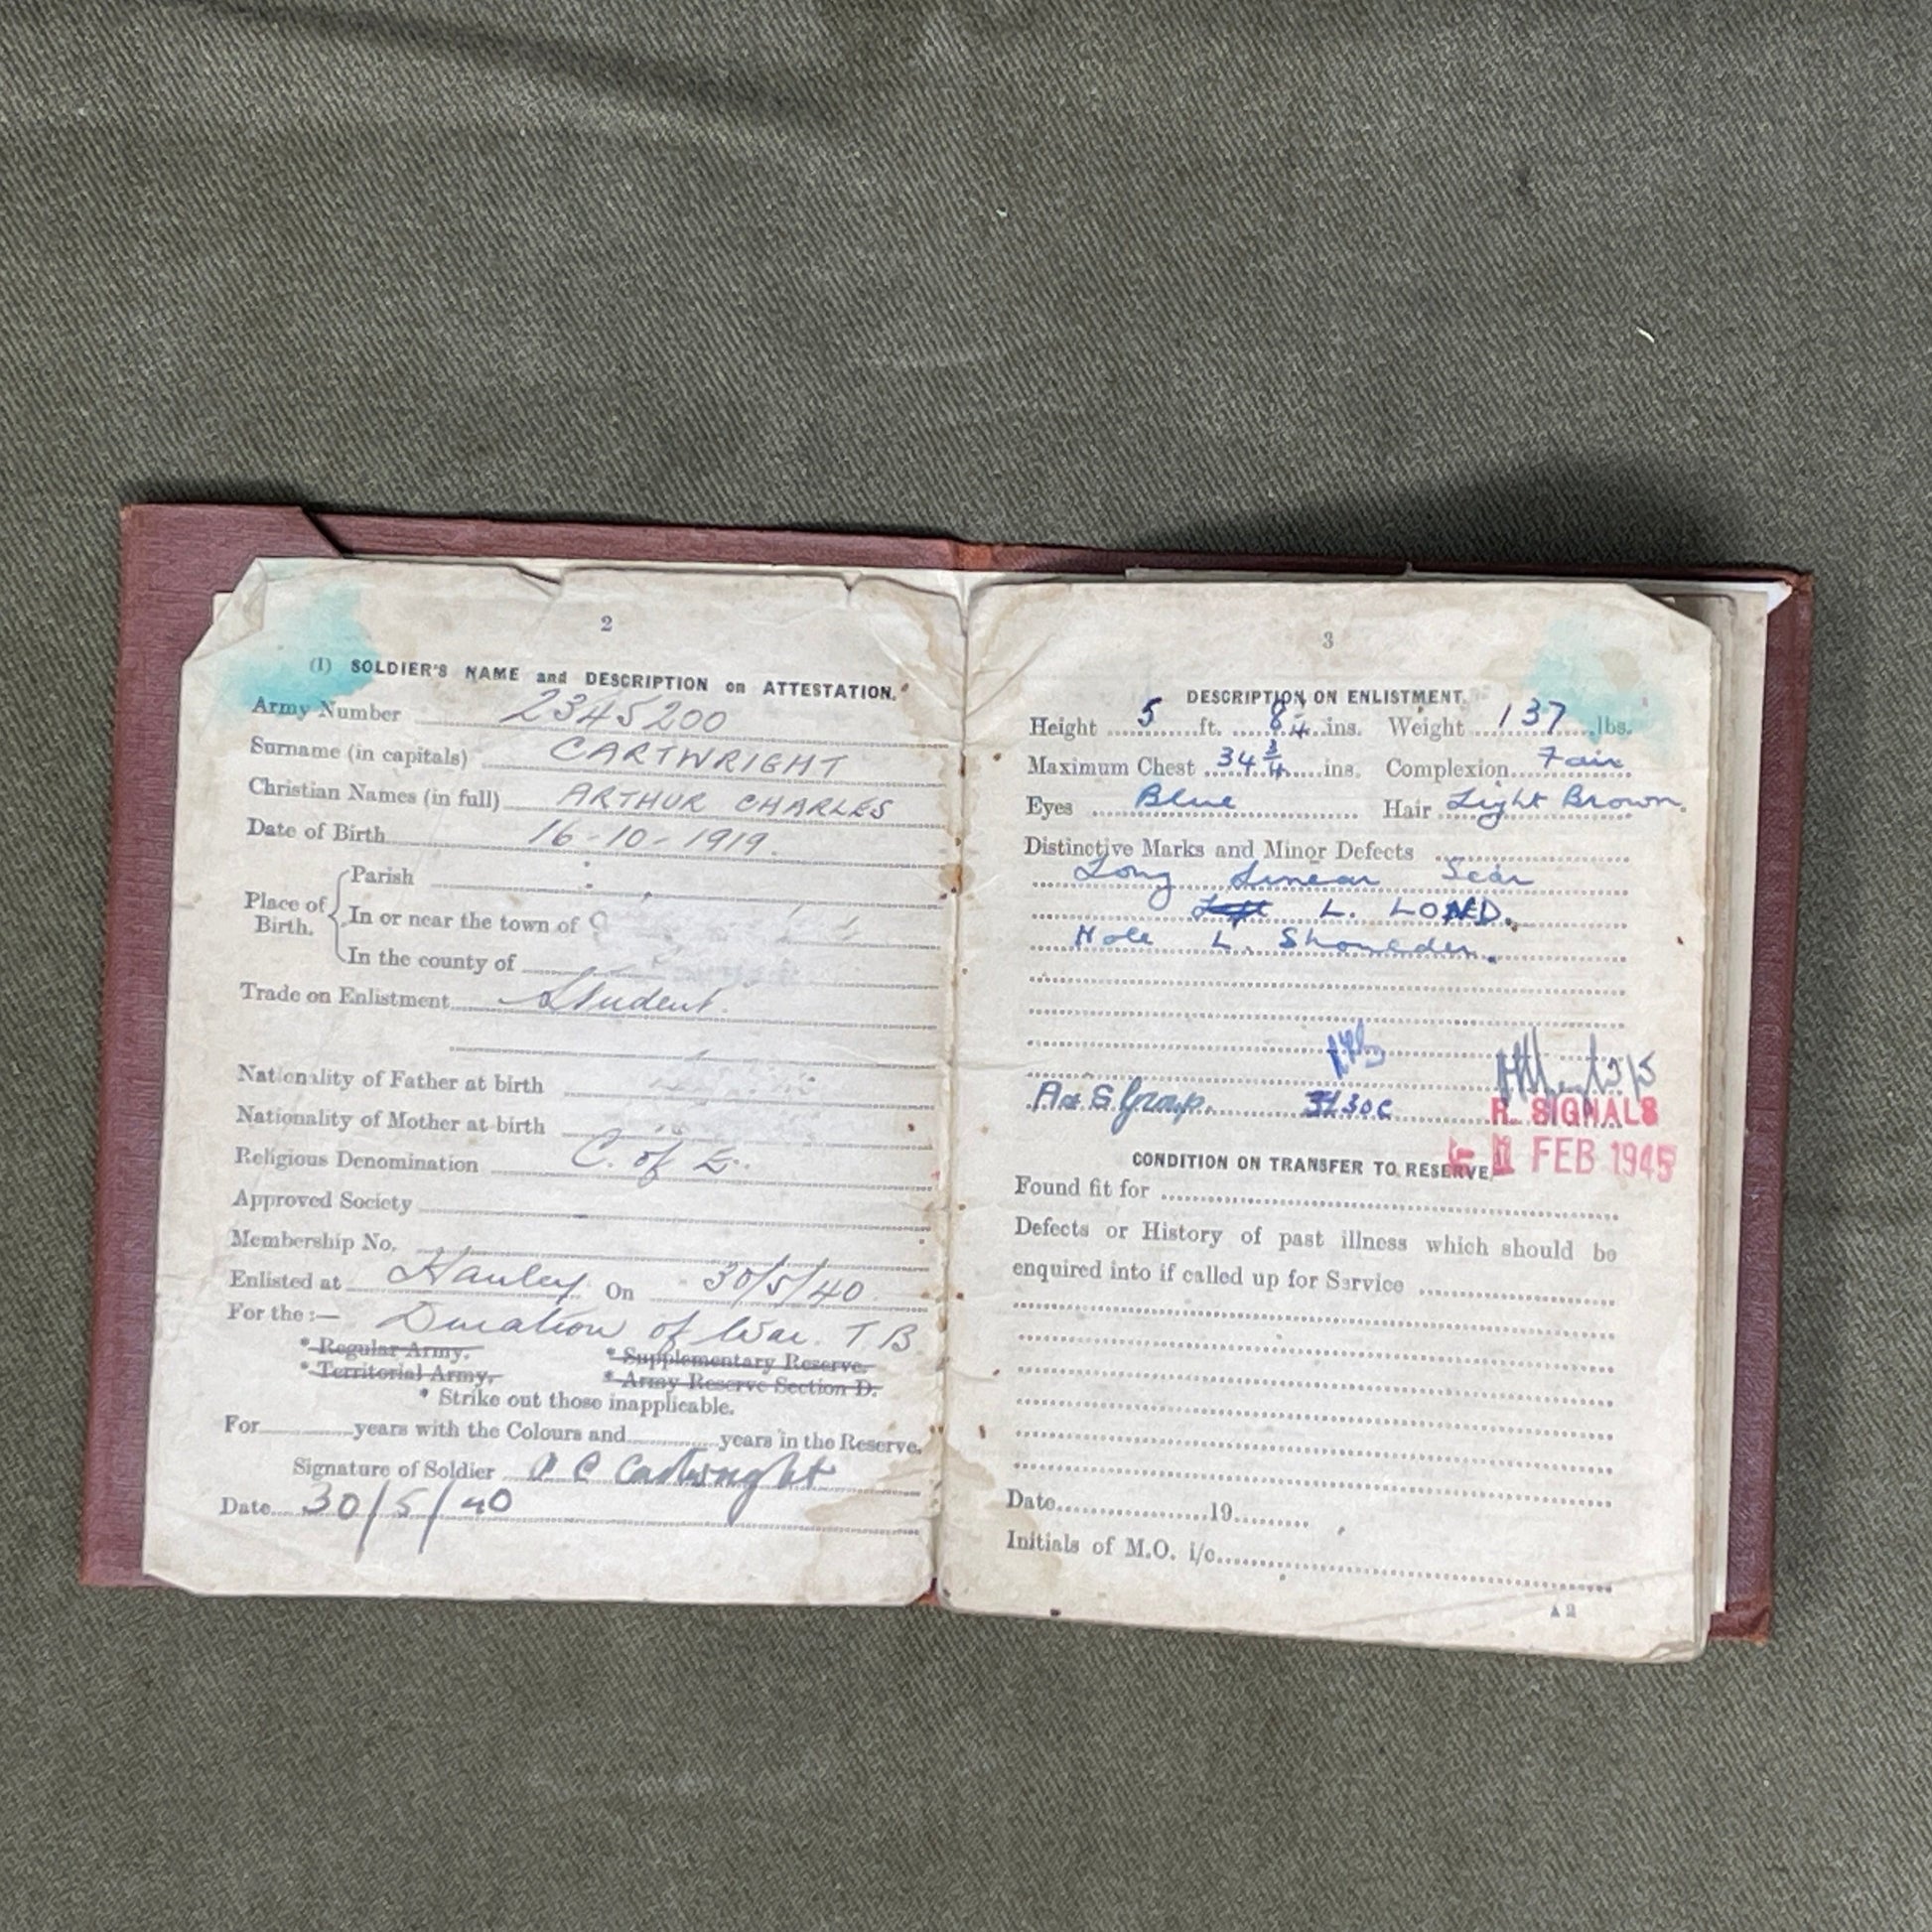 2
(I) SOLDIER'S NAME and DESCRIPTION on ATTESTATION.
Army Number 2345200
Surname (in capitals) CARTWRIGHT
Christian Names (in full) ARTHUR CHARLES
Date of Birth 16-10-1919.
Place of Birth. Parish
In or near the town of
In the county of
Trade on Enlistment Student.
Nationality of Father at birth
Nationality of Mother at birth
Religious Denomination C. of E.
Approved Society
Membership No.
Enlisted at Hanley On 30/5/40.
For the :— Duration of War. T B
* Regular Army. * Supplementary Reserve.
* Territorial Army. * Army Reserve Section D.
* Strike out those inapplicable.
For years with the Colours and years in the Reserve.
Signature of Soldier A C Cartwright
Date 30/5/40
3
DESCRIPTION ON ENLISTMENT.
Height 5 ft. 8 ins. Weight 137 lbs.
Maximum Chest 34 3/4 ins. Complexion Fair
Eyes Blue Hair Light Brown.
Distinctive Marks and Minor Defects
Long Linear Scar
L.
Mole L. Shoulder.
A & S Group.
R. SIGNALS
FEB 1945
CONDITION ON TRANSFER TO RESERVE
Found fit for
Defects or History of past illness which should be
enquired into if called up for Service
Date 19
Initials of M.O. i/c
A 2